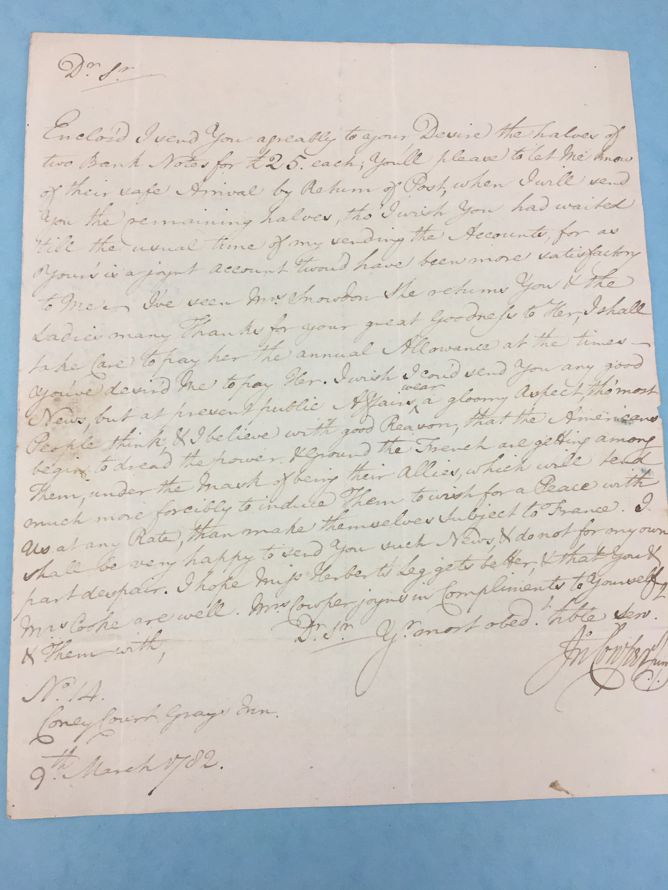 Dr. Sr.
Enclos'd I send You agreably to your Desire the halves of
two Bank Notes for £25. each, You'll please to let Me know
of their safe Arrival by Return of Post, when I will send
You the remaining halves, tho' I wish You had waited
'till the usual time of my sending the Accounts, for as
Yours is a joynt account 'twould have been more satisfactory
to Me. I've seen Mrs. Snowdon she returns You & the
Ladies many Thanks for your great Goodness to Her, I shall
take Care to pay her the annual Allowance at the times
You've desir'd Me to pay Her. I wish I cou'd send You any good
News, but at present public Affairs wear a gloomy Aspect, tho' most
People think, & I believe with good Reason, that the Americans
begin to dread the power & Ground the French are getting among
Them, under the Mask of being their Allies, which will tend
much more forcibly to induce Them to wish for a Peace with
Us at any Rate, than make themselves Subject to France. I
shall be very happy to send You such News, & do not for my own
part despair. I hope Miss Herbert's Leg gets better, & that You &
Mrs Cooke are well. Mrs Cowper joyns in Compliments to Yourself
& Them with,
Dr. Sr. Yr. most obed.t h'ble serv.t
Jn Cowper Junr.
No. 14.
Coney Court Grays Inn.
9th March 1782.